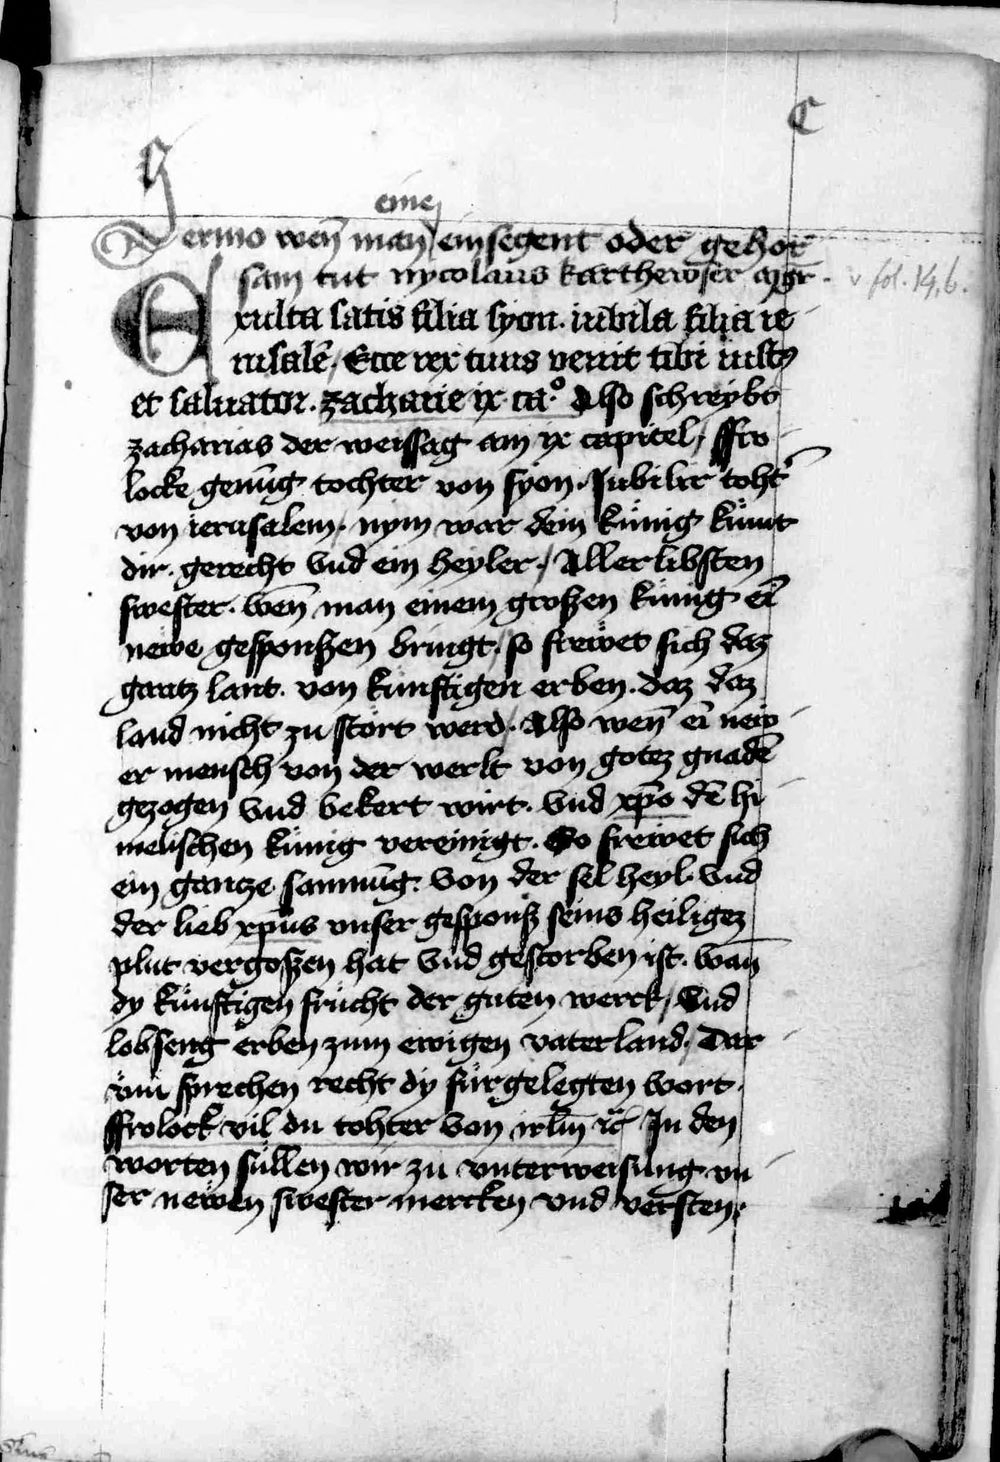 C
S
eine
Sermo wen̄ man einsegent oder gehor
sam tut nycolaus karthewser mgr̄.
v fol. 14, b.
Exulta satis filia syon. iubila filia ie-
rusalē / Ecce rex tuus venit tibi iustꝰ
et saluator. zacharie ix caº. Also schreybt
zacharias der weissag am ix capitel / ffro-
locke genūg tochter von syon. Jubilir toht̛
von ierusalem. nym war dein künig kümt
dir. gerecht vnd ein heyler. / Aller libsten
swester. wen̄ man einem großen künig ei̅
newe gesponßen bringt. so frewet sich daz
gantz lant. von künftigen erben. daz daz
land nicht zu stört werd. / Also wen̄ ei̅ new-
er mensch von der werlt von gotez gnadē
gezogen vnd bekert wirt. vnd xp̄o dē hi-
melischen künig vereinigt. So frewet sich
ein gantze samnūg. von der sel heyl. vnd
der lieb xp̄us vnser gesponß seins heiligez
plut vergoßen hat vnd gestorben ist. wan̄
dy künftigen frücht der guten werck / vnd
lobseng erben zum ewigen vaterland. / Dar-
vm̄ sprechen recht dy fürgelegten wort.
ffrolock vil du tohter von irl̄m ꝛc̄ Jn den
worten süllen wir zu vnterweisung vn-
ser newen swester mercken vnd versten.